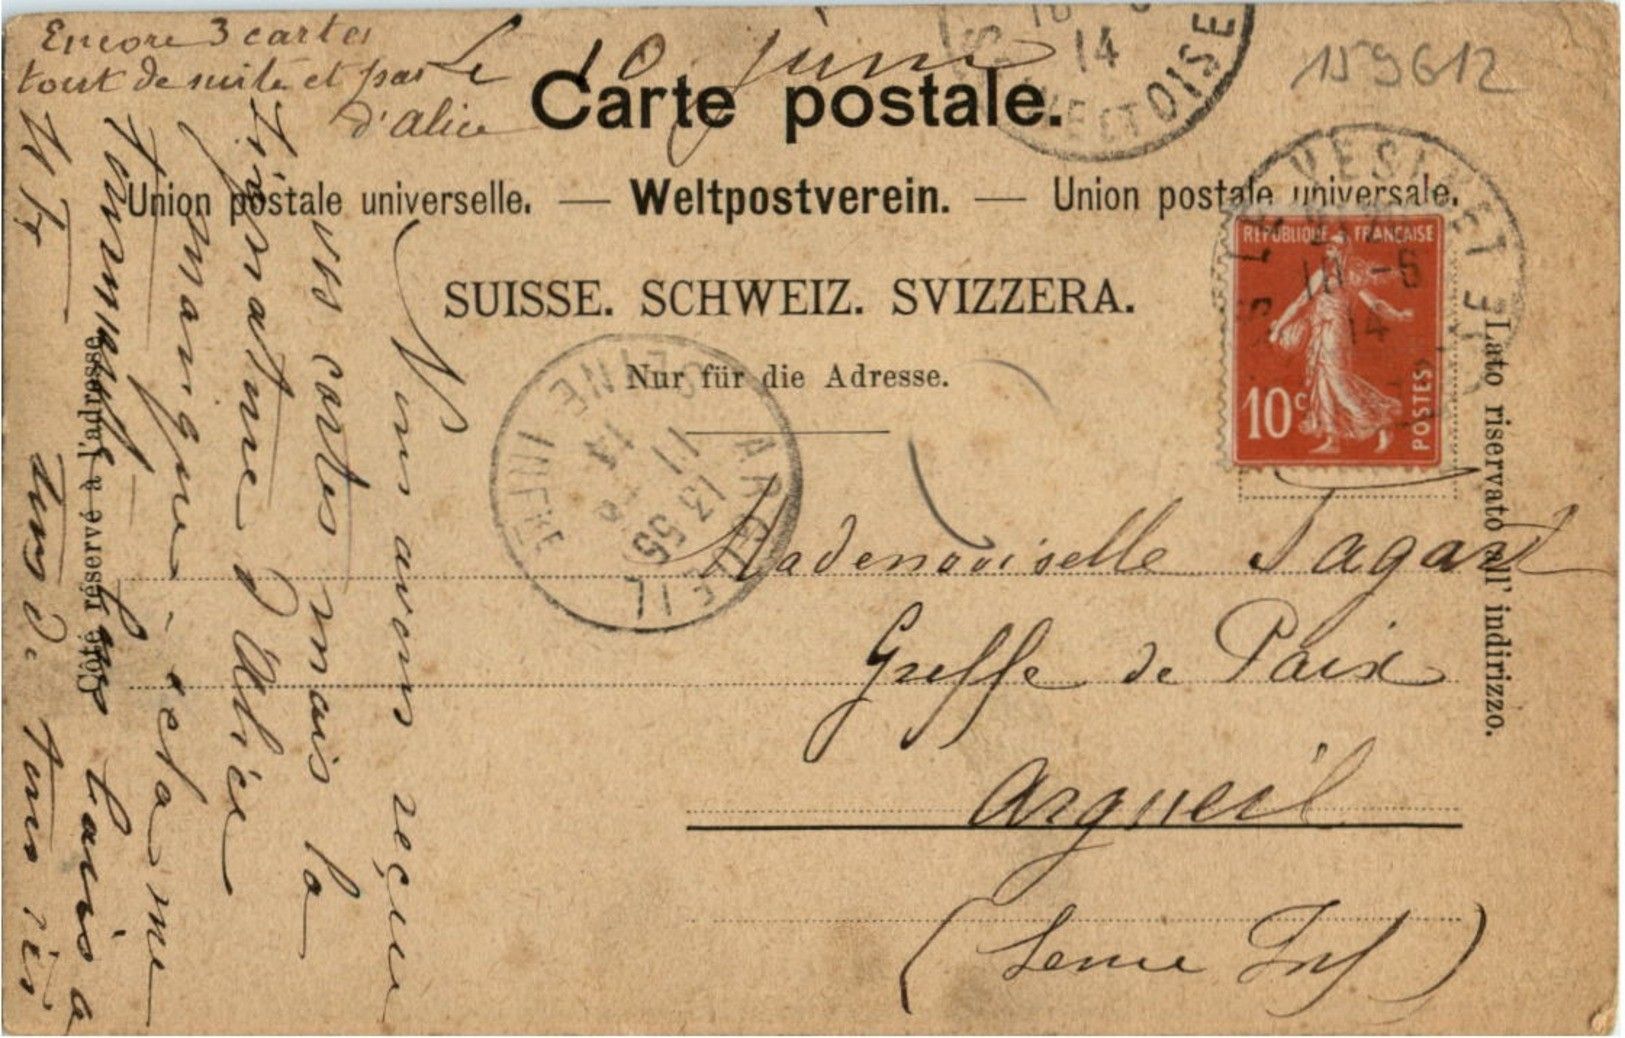 Encore 3 cartes
tout de suite et pas
d'alice
Le 10 juin
159612
Carte postale.
Union postale universelle. — Weltpostverein. — Union postale universale.
SUISSE. SCHWEIZ. SVIZZERA.
Nur für die Adresse.
Côté réservé à l'adresse.
Lato riservato all' indirizzo.
REPUBLIQUE FRANÇAISE
10c
POSTES
LE VESINET
10 -6
14
ET OISE
14
ARGUEIL
SEINE INFRE
13 55
11
14
Mademoiselle
Greffe de Paix
Argueil
(Seine Inf)
Nous avons reçue
vos cartes mais la
signature d'Alice
manque, cela me